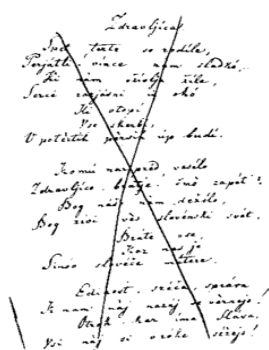 Zdravljica
Spet terte so rodile,
Perjatli, vince nam sladkó,
Ki nam oživlja žile,
Sercé razjasni in okó
Ki otopi
Vse skerbi,
V potertih persih up budi.
Komú narpred veselo
Zdravljico, bratje! čmò zapét'?
Bog naš nam deželo,
Bog živi vès slovénski svét.
Bratè vse,
Kar nas je
Sinóv slovéče matere.
Edinost, sréča, správa
K nam naj nazaj se vernejo!
Otrók kar ima Sláva,
Vsi naj si v róke séžejo!